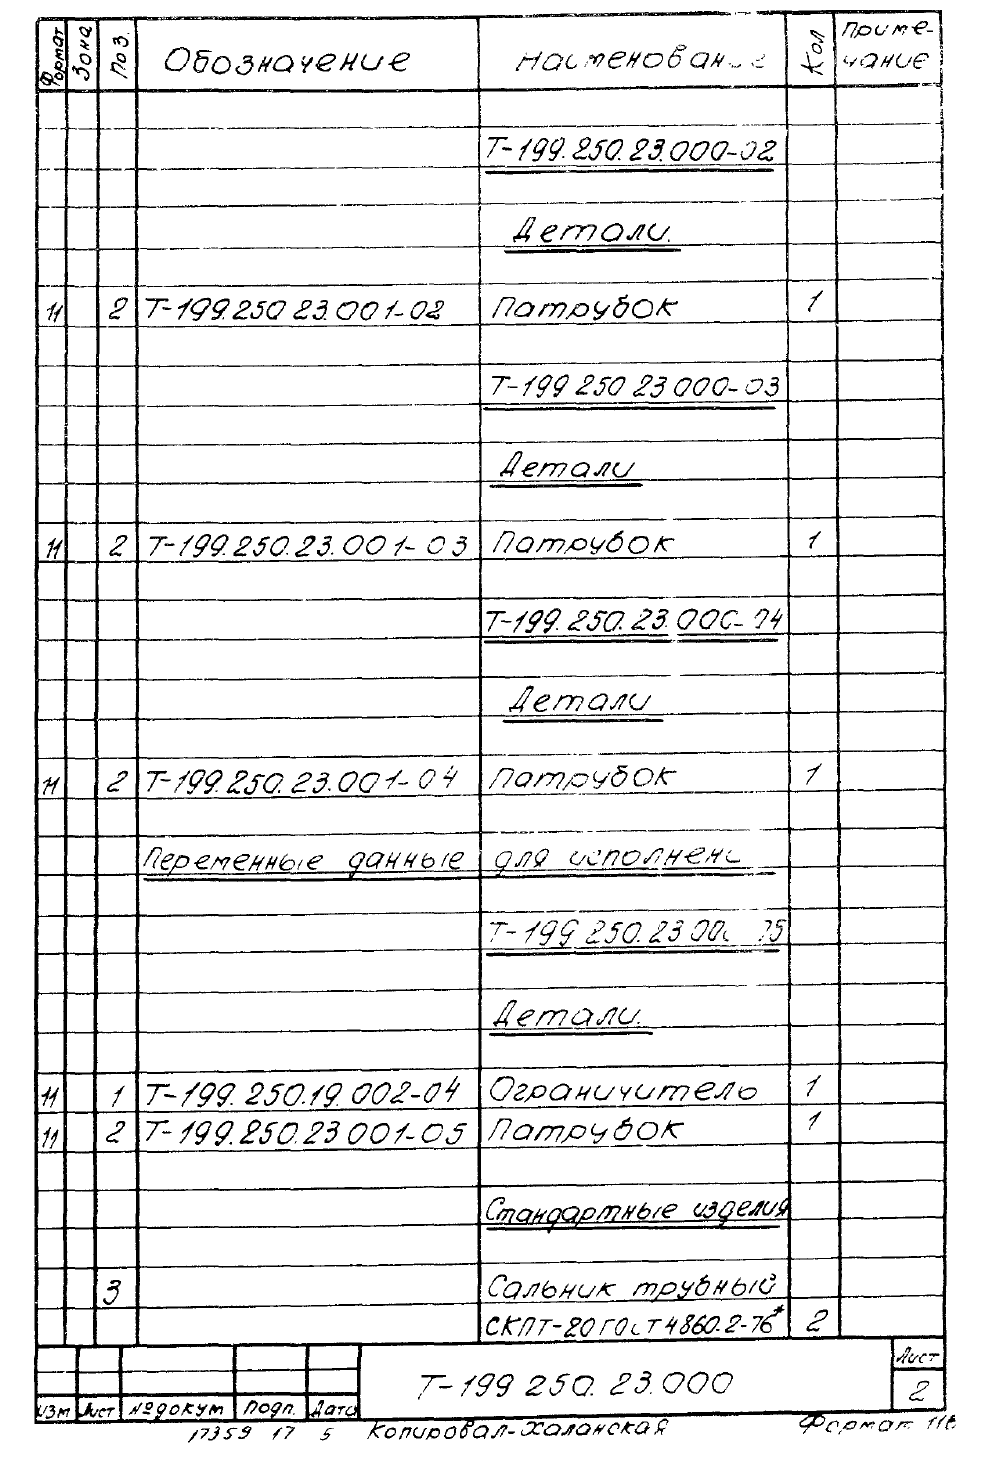 Формат Зона Поз. Обозначение Наименование Кол Приме-
чание
Т-199.250.23.000-02
Детали.
11 2 Т-199.250 23.001-02 Патрубок 1
Т-199 250 23 000-03
Детали
11 2 Т-199.250.23.001-03 Патрубок 1
Т-199.250.23.000-04
Детали
11 2 Т-199.250.23.001-04 Патрубок 1
Переменные данные для исполнени
Т-199 250.23 00 05
Детали.
11 1 Т-199.250.19.002-04 Ограничитель 1
11 2 Т-199.250.23 001-05 Патрубок 1
Стандартные изделия
3 Сальник трубный
СКПТ-20 ГОСТ 4860.2-76* 2
Т-199 250.23.000
Лист
2
Изм Лист № докум Подп. Дата
17359 17 5 Копировал-Халанская Формат 11В